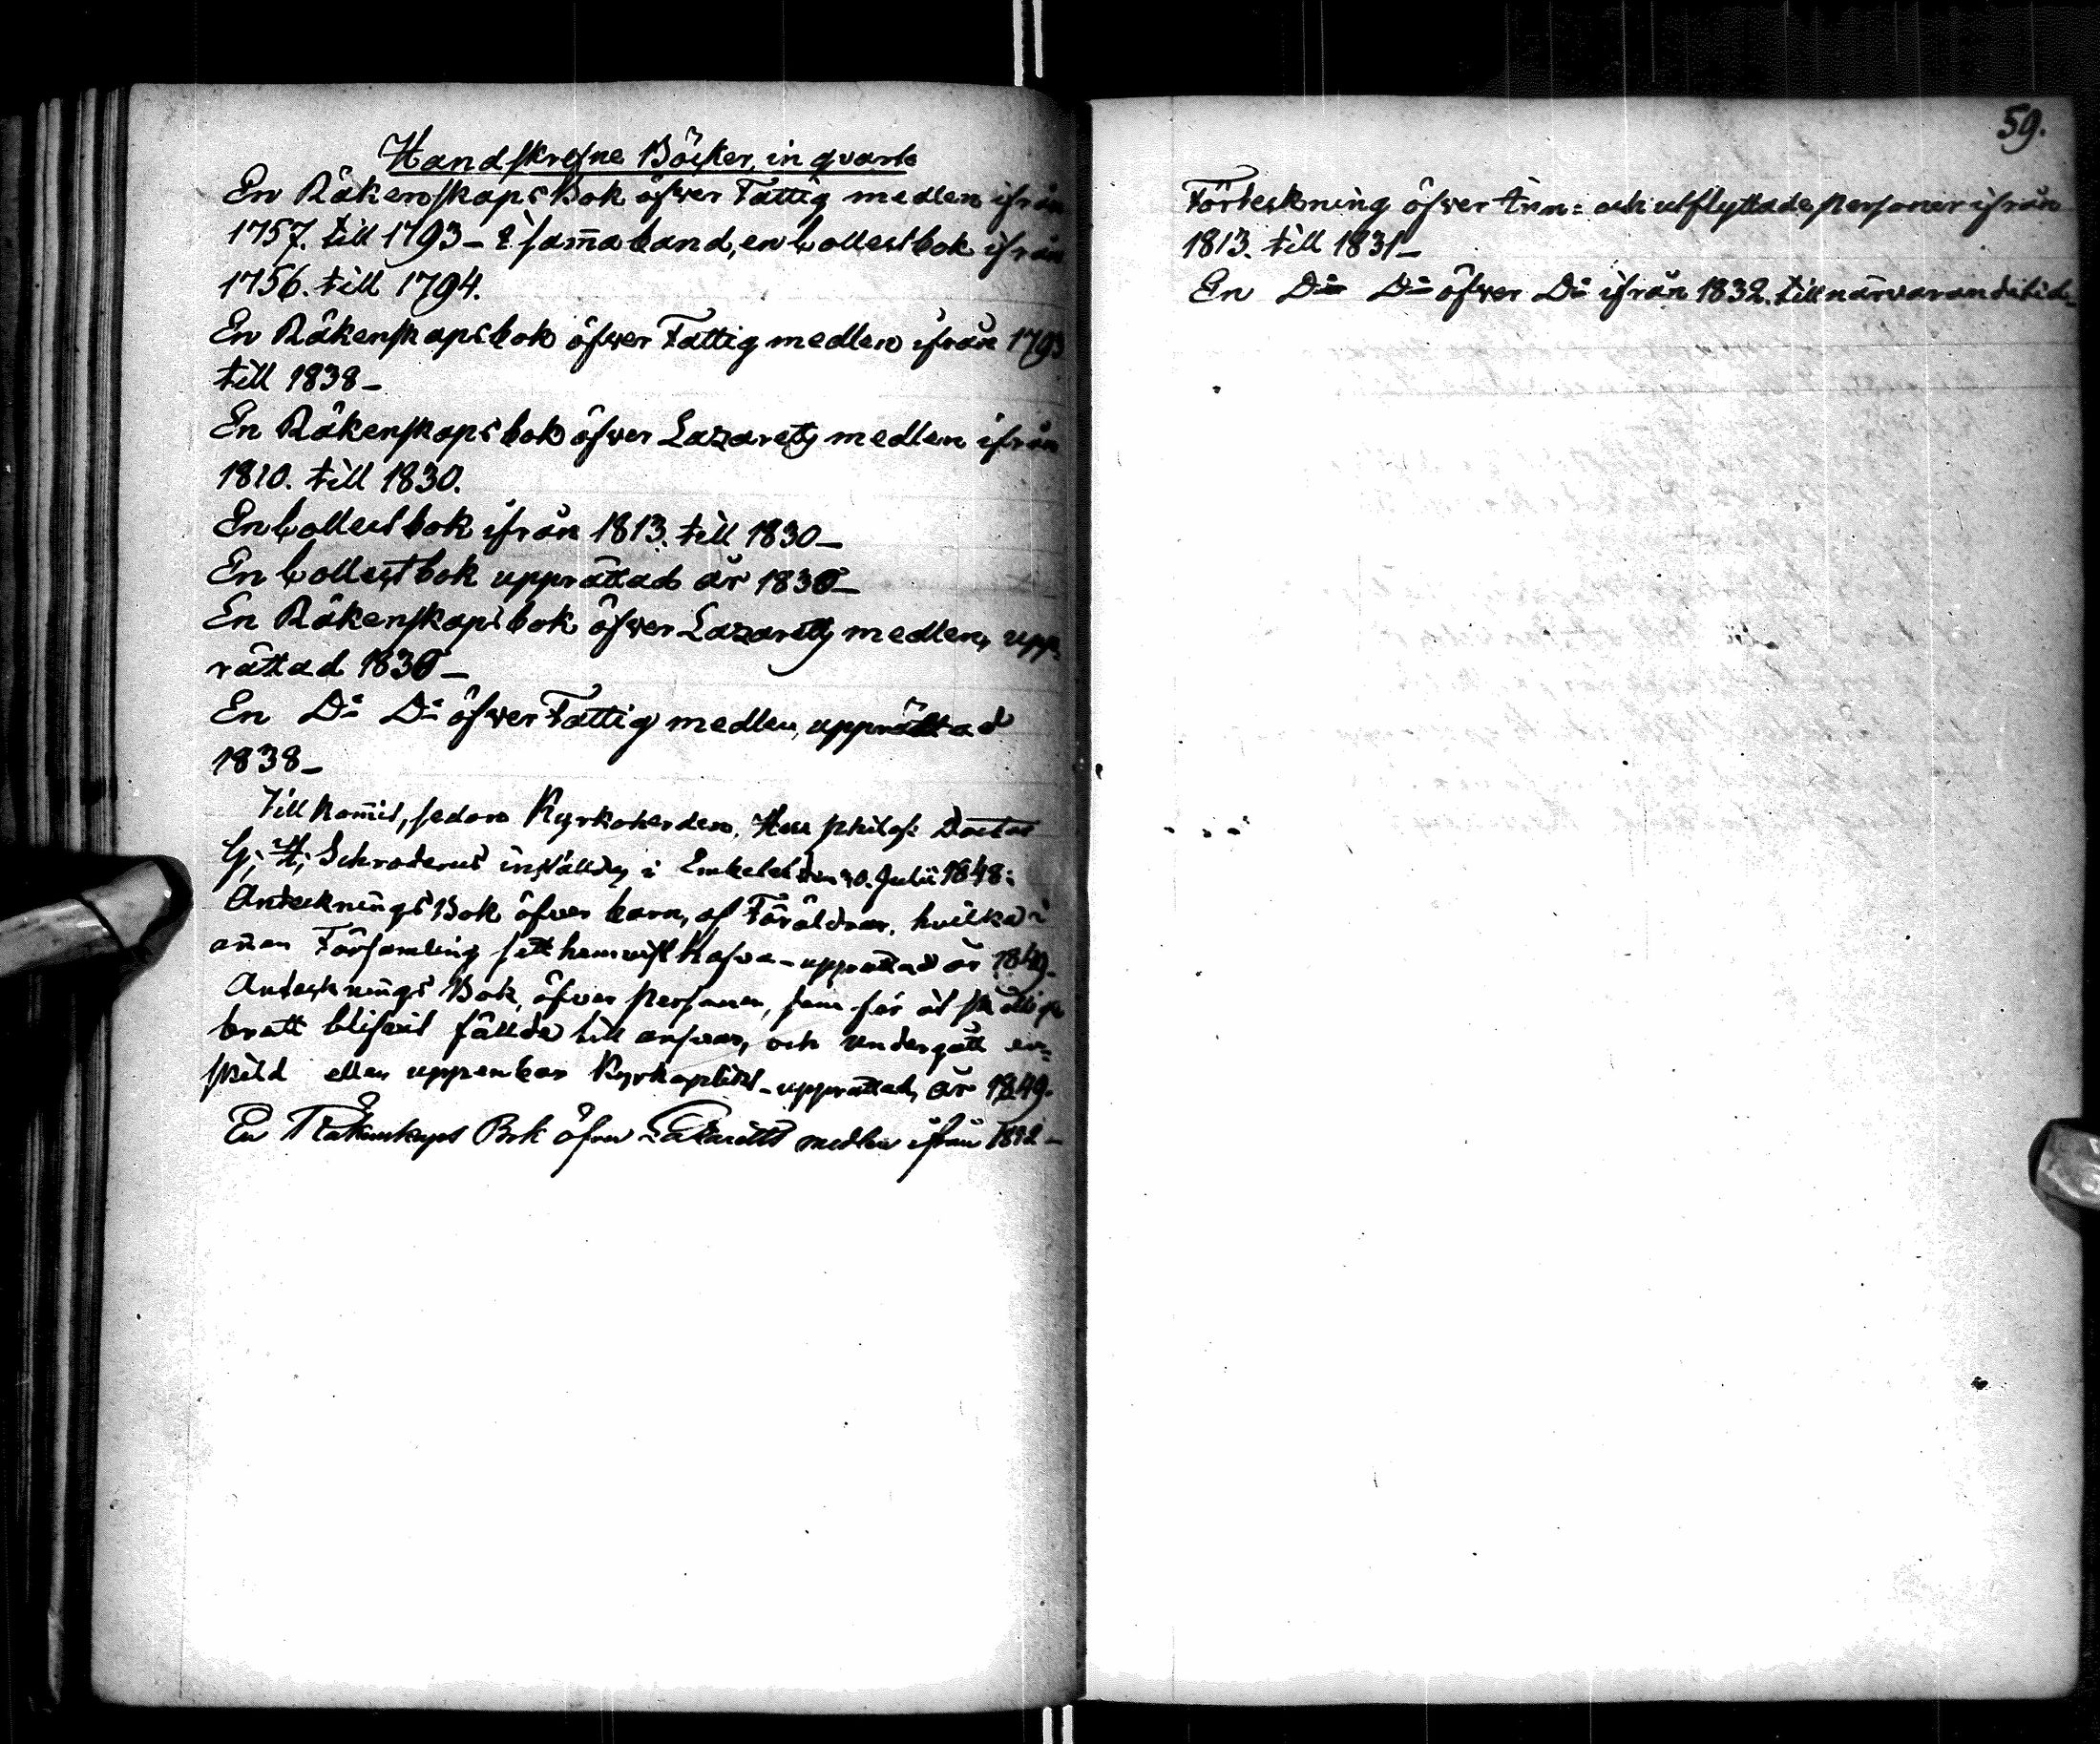 Handskrefne Böcker, in qvarto
En Räkenskaps Bok öfver Fattig medlen ifrån
1757. till 1793 – i samma band, en Collectbok ifrån
1756. till 1794.
En Räkenskapsbok öfver Fattig medlen ifrån 1793
till 1838 –
En Räkenskapsbok öfver Lazaretts medlen ifrån
1810. till 1830.
En Collectbok ifrån 1813. till 1830 –
En Collectbok upprättad år 1830 –
En Räkenskapsbok öfver Lazaretts medlen, upp-
rättad 1830 –
En Do Do öfver Fattig medlen, upprättad
1838 –
Tillkommit, sedan Kyrkoherden, Herr philos: Doctor
G; H; Schröderus inställdes i Embetet den 30. Julii 1848:
Antecknings Bok öfver barn, af Föräldrar, hvilka i
annan Församling sitt hemvist hafva – upprättad år 1849.
Antecknings Bok, öfver personer, som för åtskilliga
brott blifvit fällde till ansvar, och undergått en-
skild eller uppenbar Kyrkoplikt – upprättad, år 1849.
En Räkenskaps Bok öfver Lazaretts medlen ifrån
59.
Förteckning öfver Inn- och utflyttade personer ifrån
1813. till 1831 –
En Do Do öfver Do ifrån 1832. till närvarande tid –